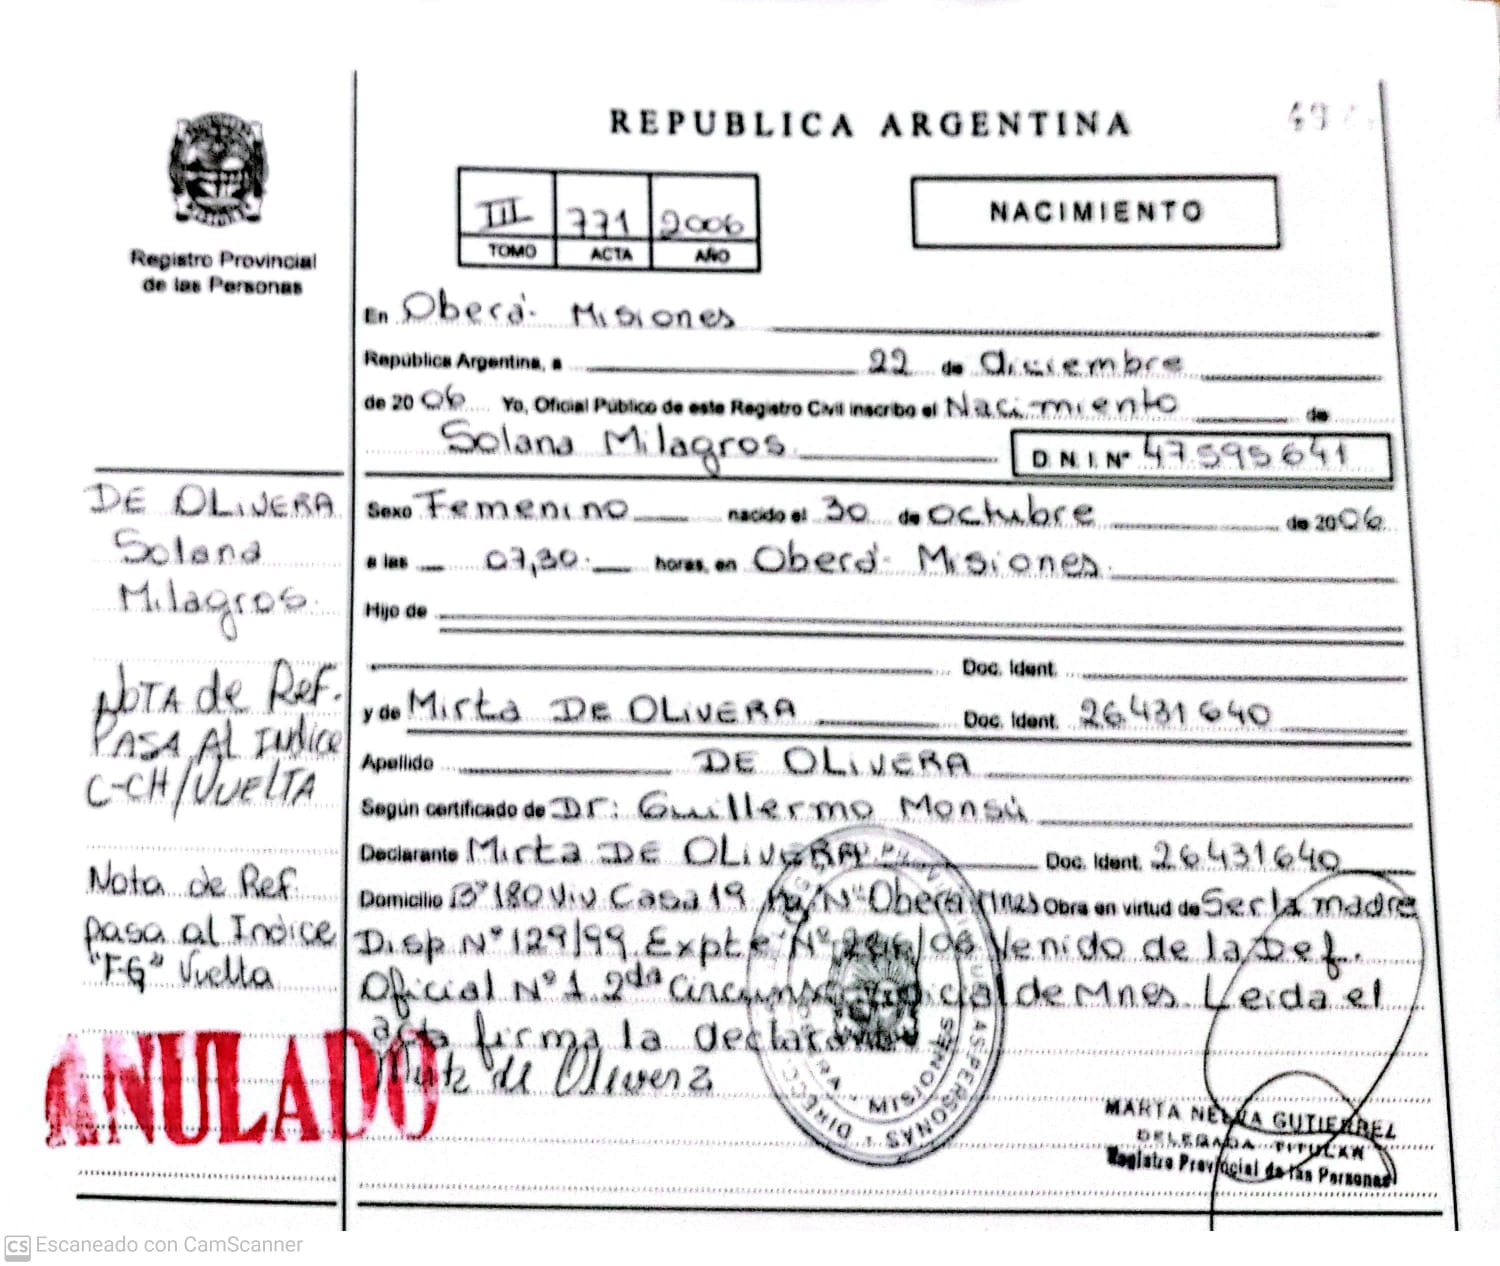 REPUBLICA ARGENTINA
49
Registro Provincial
de las Personas
III 771 2006
TOMO ACTA AÑO
NACIMIENTO
En Oberá- Misiones
República Argentina, a 22 de diciembre
de 2006 Yo, Oficial Público de este Registro Civil inscribo el Nacimiento de
Solana Milagros D.N.I. Nº 47.595.641
DE OLIVERA
Solana
Milagros.
Sexo Femenino nacido el 30 de octubre de 2006
a las 07,30- horas, en Oberá- Misiones.
Hijo de
Doc. Ident.
y de Mirta DE OLIVERA Doc. Ident. 26431640
Apellido DE OLIVERA
Según certificado de Dr: Guillermo Monsú
Declarante Mirta DE OLIVERA Doc. Ident. 26431640
Domicilio Bº 180 Viv Casa 19 Nº Oberá Mnes Obra en virtud de Ser la madre
Disp Nº 129/99 Expte Nº /06 Venido de la Def.
Oficial Nº 1 2da Circuns Judicial de Mnes. Leida el
acta firma la declarante
Mirta de Olivera
NOTA de Ref.
PASA Al Indice
C-CH/VUELTA
Nota de Ref
pasa al Indice
"F-G" Vuelta
ANULADO
MISIONES
DIRECC
PERSONAS
MARTA NELVA GUTIERREZ
DELEGADA TITULAR
Registro Provincial de las Personas
CS Escaneado con CamScanner